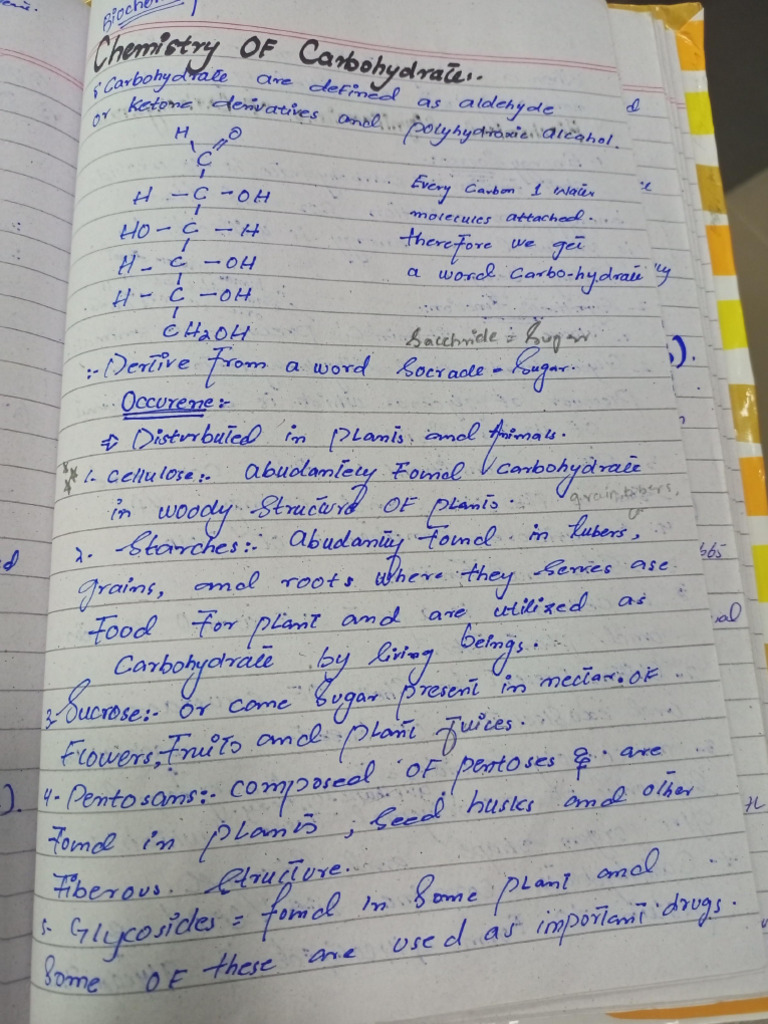 Biochem
Chemistry OF Carbohydrate:.
Carbohydrate are defined as aldehyde
or ketone derivatives and polyhydroxic alcohol.
H O
C
H - C - OH
HO - C - H
H - C - OH
H - C - OH
CH2OH
Every Carbon 1 water
molecules attached.
therefore we get
a word Carbo-hydrate
Sacchride = Sugar
:- Dertive from a word Socrade = Sugar.
Occurene:-
=> Disturbuted in plants and Animals.
1. Cellulose:- abudantely Found Carbohydrate
in woody structure OF plants.
grain, tubers,
2. Starches:- abudantly found in tubers,
grains, and roots where they serves ase
Food For plant and are utilized as
Carbohydrate by living beings.
3. Sucrose:- or came Sugar present in nectar OF
Flowers, Fruits and plant Juices.
4. Pentosans:- composed OF pentoses & are
Found in plants, Seed husks and other
Fiberous structure.
5. Glycosides = found in Some plant and
Some OF these are used as important drugs.